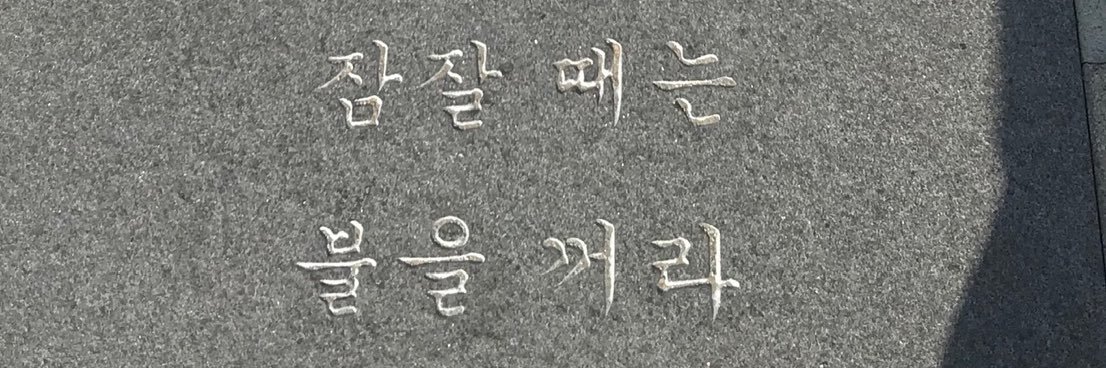 잠잘 때는
불을 꺼라